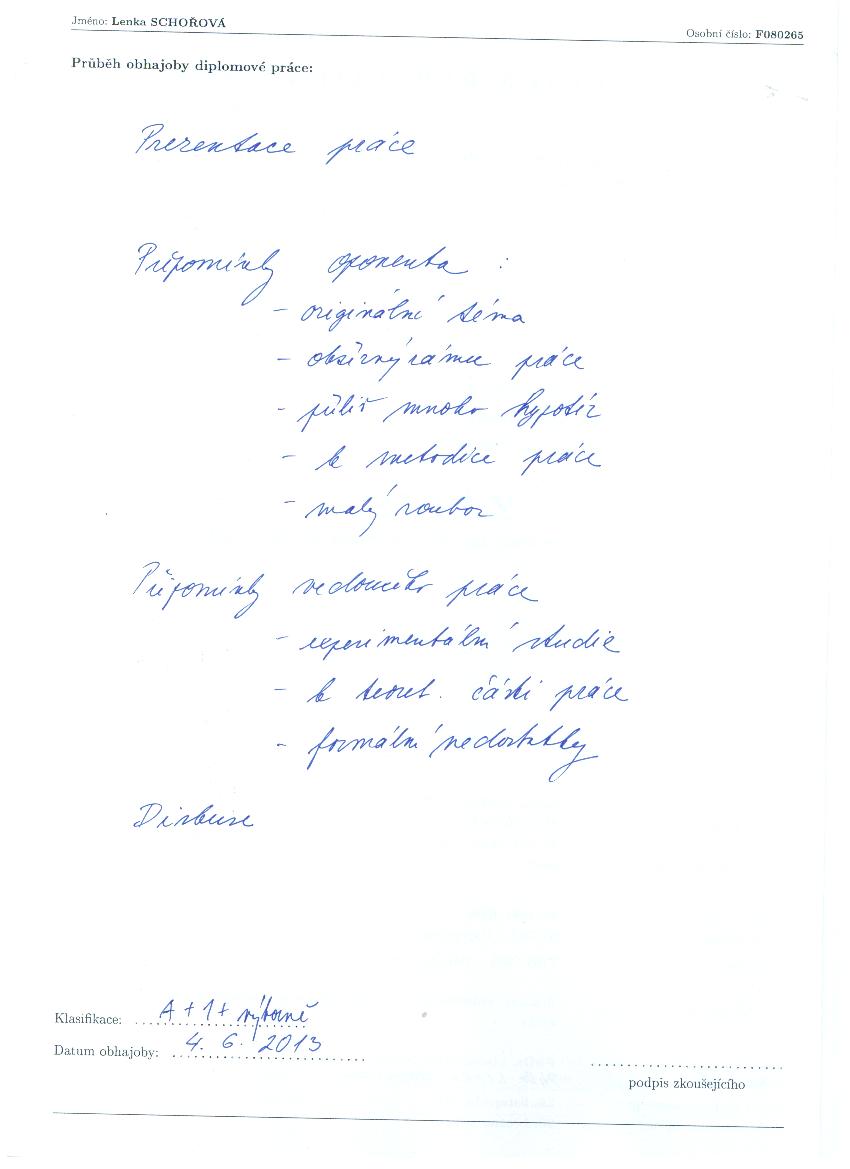 Jméno: Lenka SCHOŘOVÁ
Osobní číslo: F080265
Průběh obhajoby diplomové práce:
Prezentace práce
Připomínky oponenta :
- originální téma
- obsírný rámec práce
- příliš mnoho hypotéz
- k metodice práce
- malý soubor
Připomínky vedoucího práce
- experimentální studie
- k teoret. části práce
- formální nedostatky
Diskuse
Klasifikace: A + 1 + výborně
Datum obhajoby: 4. 6. 2013
podpis zkoušejícího